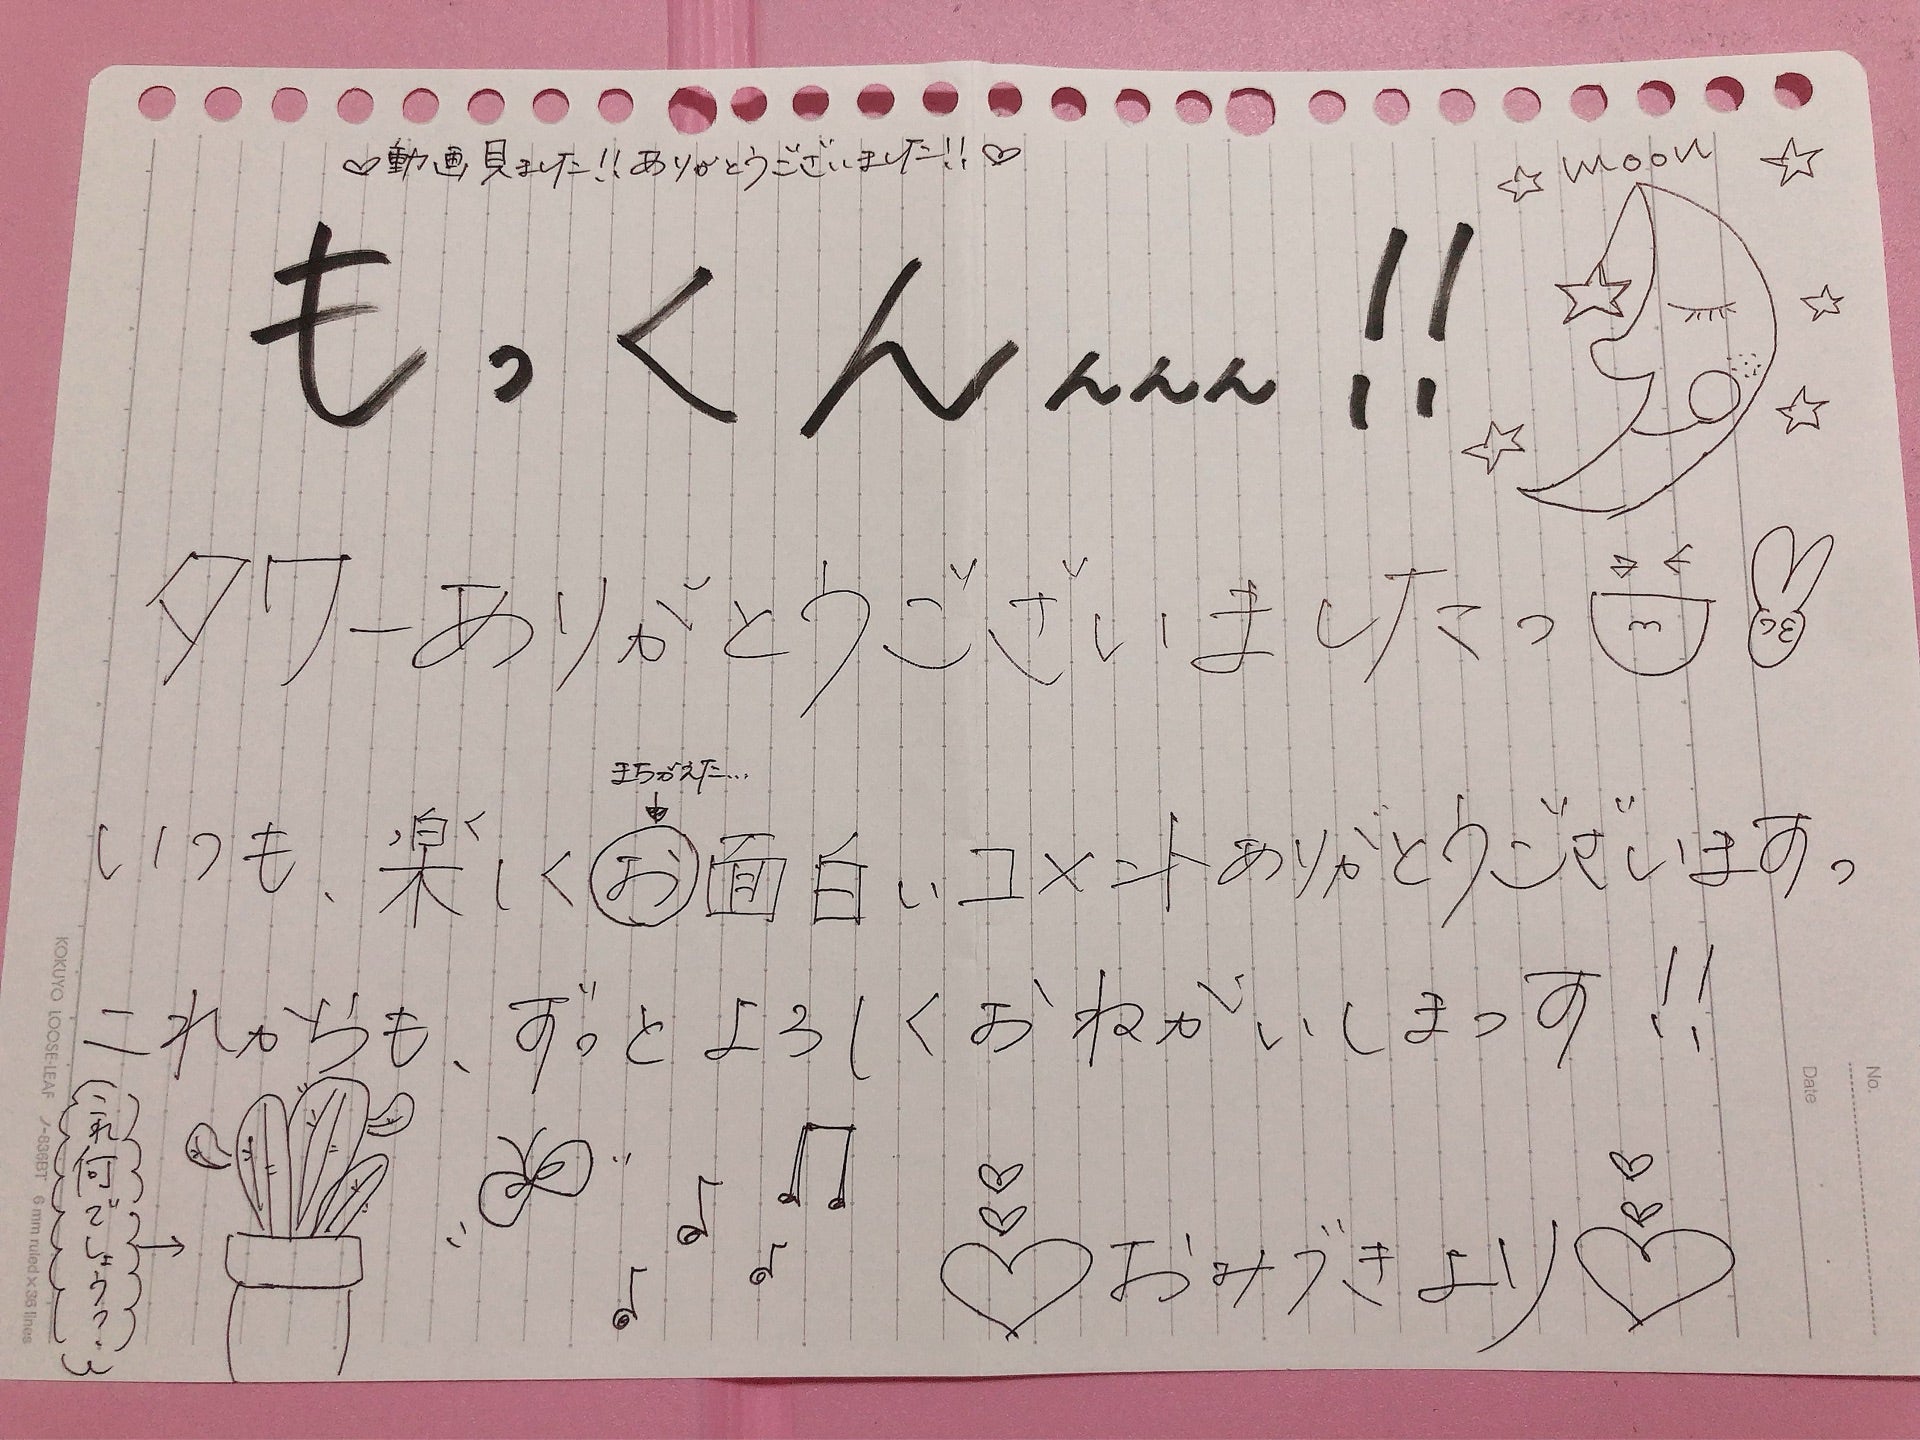 ♡動画見ました!!ありがとうございました!!♡
moon
もっくんんんん!!
タワーありがとうございましたっ
まちがえた…
いつも、楽しくお面白いコメントありがとうございます。
これからも、ずっとよろしくおねがいしまっす!!
これ何でしょう?
→
♡おみづきより♡
KOKUYO LOOSE-LEAF ノ-836BT 6 mm ruled×36 lines
No.
Date